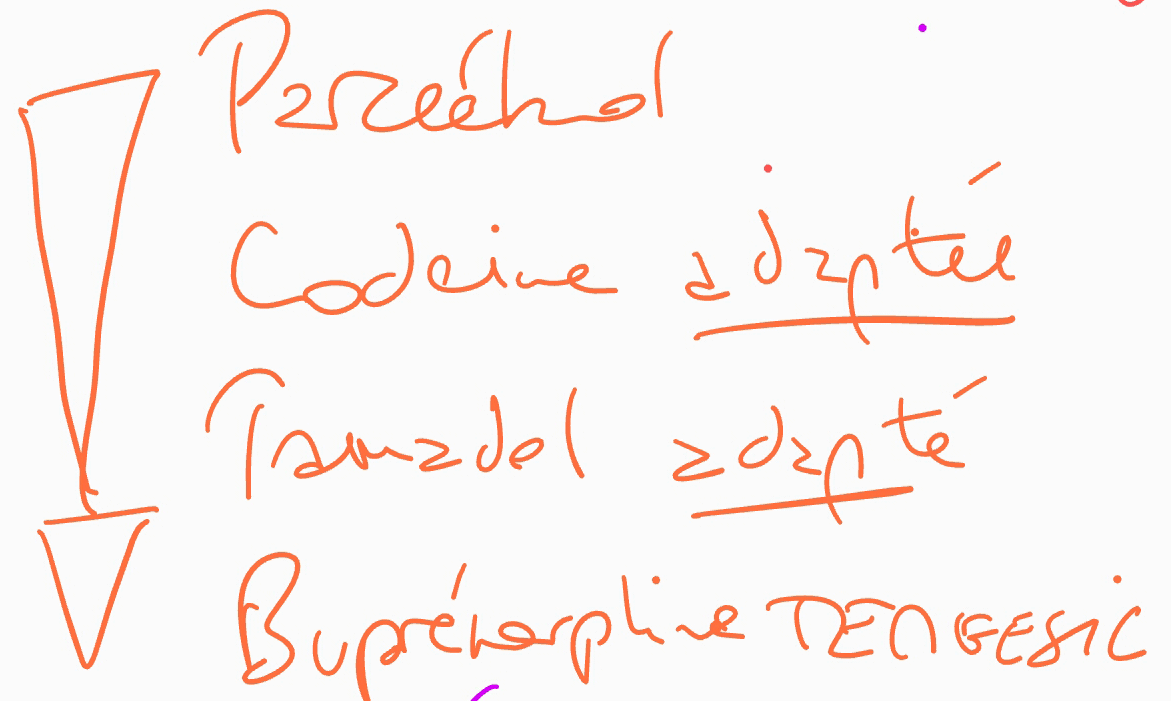 Paracétmol
Codeine adaptée
Tramadol adapté
Buprénorphine TEMGESIC